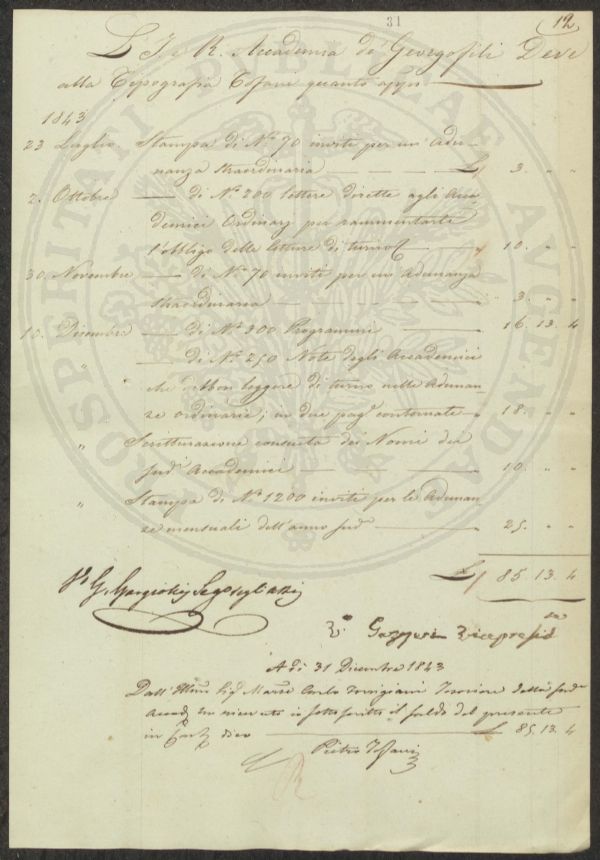 31
12
L'I. e R. Accademia de' Georgofili Deve
alla Tipografia Tofani quanto apps
1843
23 Luglio Stampa di No. 70 inviti per un'Adu-
nanza straordinaria L 3. " "
2. Ottobre — di No. 200 lettere dirette agli Acca
demici Ordinarj per rammentarle
l'obbligo delle letture di turno " 10. " "
30. Novembre — di No. 70 inviti per un'Adunanza
straordinaria " 3. " "
10. Dicembre — di No. 300 Programmi " 16. 13. 4
" — di No. 250 Note degli Accademici
che debbon leggere di turno nelle Adunan
ze ordinarie; in due pag. contornate " 18. " "
" Scritturazione consueta dei Nomi dei
sudi Accademici " 10. " "
" Stampa di No. 1200 inviti per le Adunan
ze mensuali dell'anno sudo " 25. " "
L 85. 13. 4
Vo Gazzeri Vicepreside
A dì 31 Dicembre 1843
Dall'Illmo Sig. Marse Carlo Torrigiani Tesoriere della suda
Accada ho ricevuto io sottoscritto il saldo del presente
in L 85. 13. 4
Pietro Tofani
PROSPERITATI PUBLICAE AUGENDAE